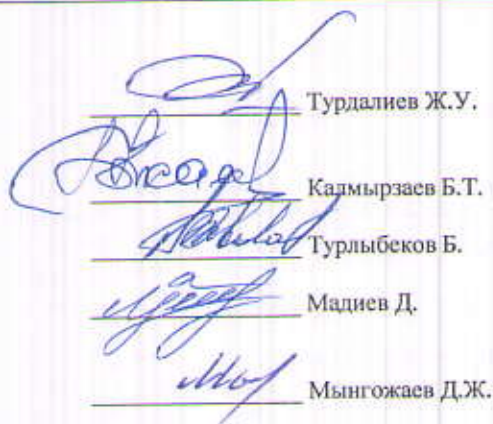 Турдалиев Ж.У.
Калмырзаев Б.Т.
Турлыбеков Б.
Мадиев Д.
Мынгожаев Д.Ж.